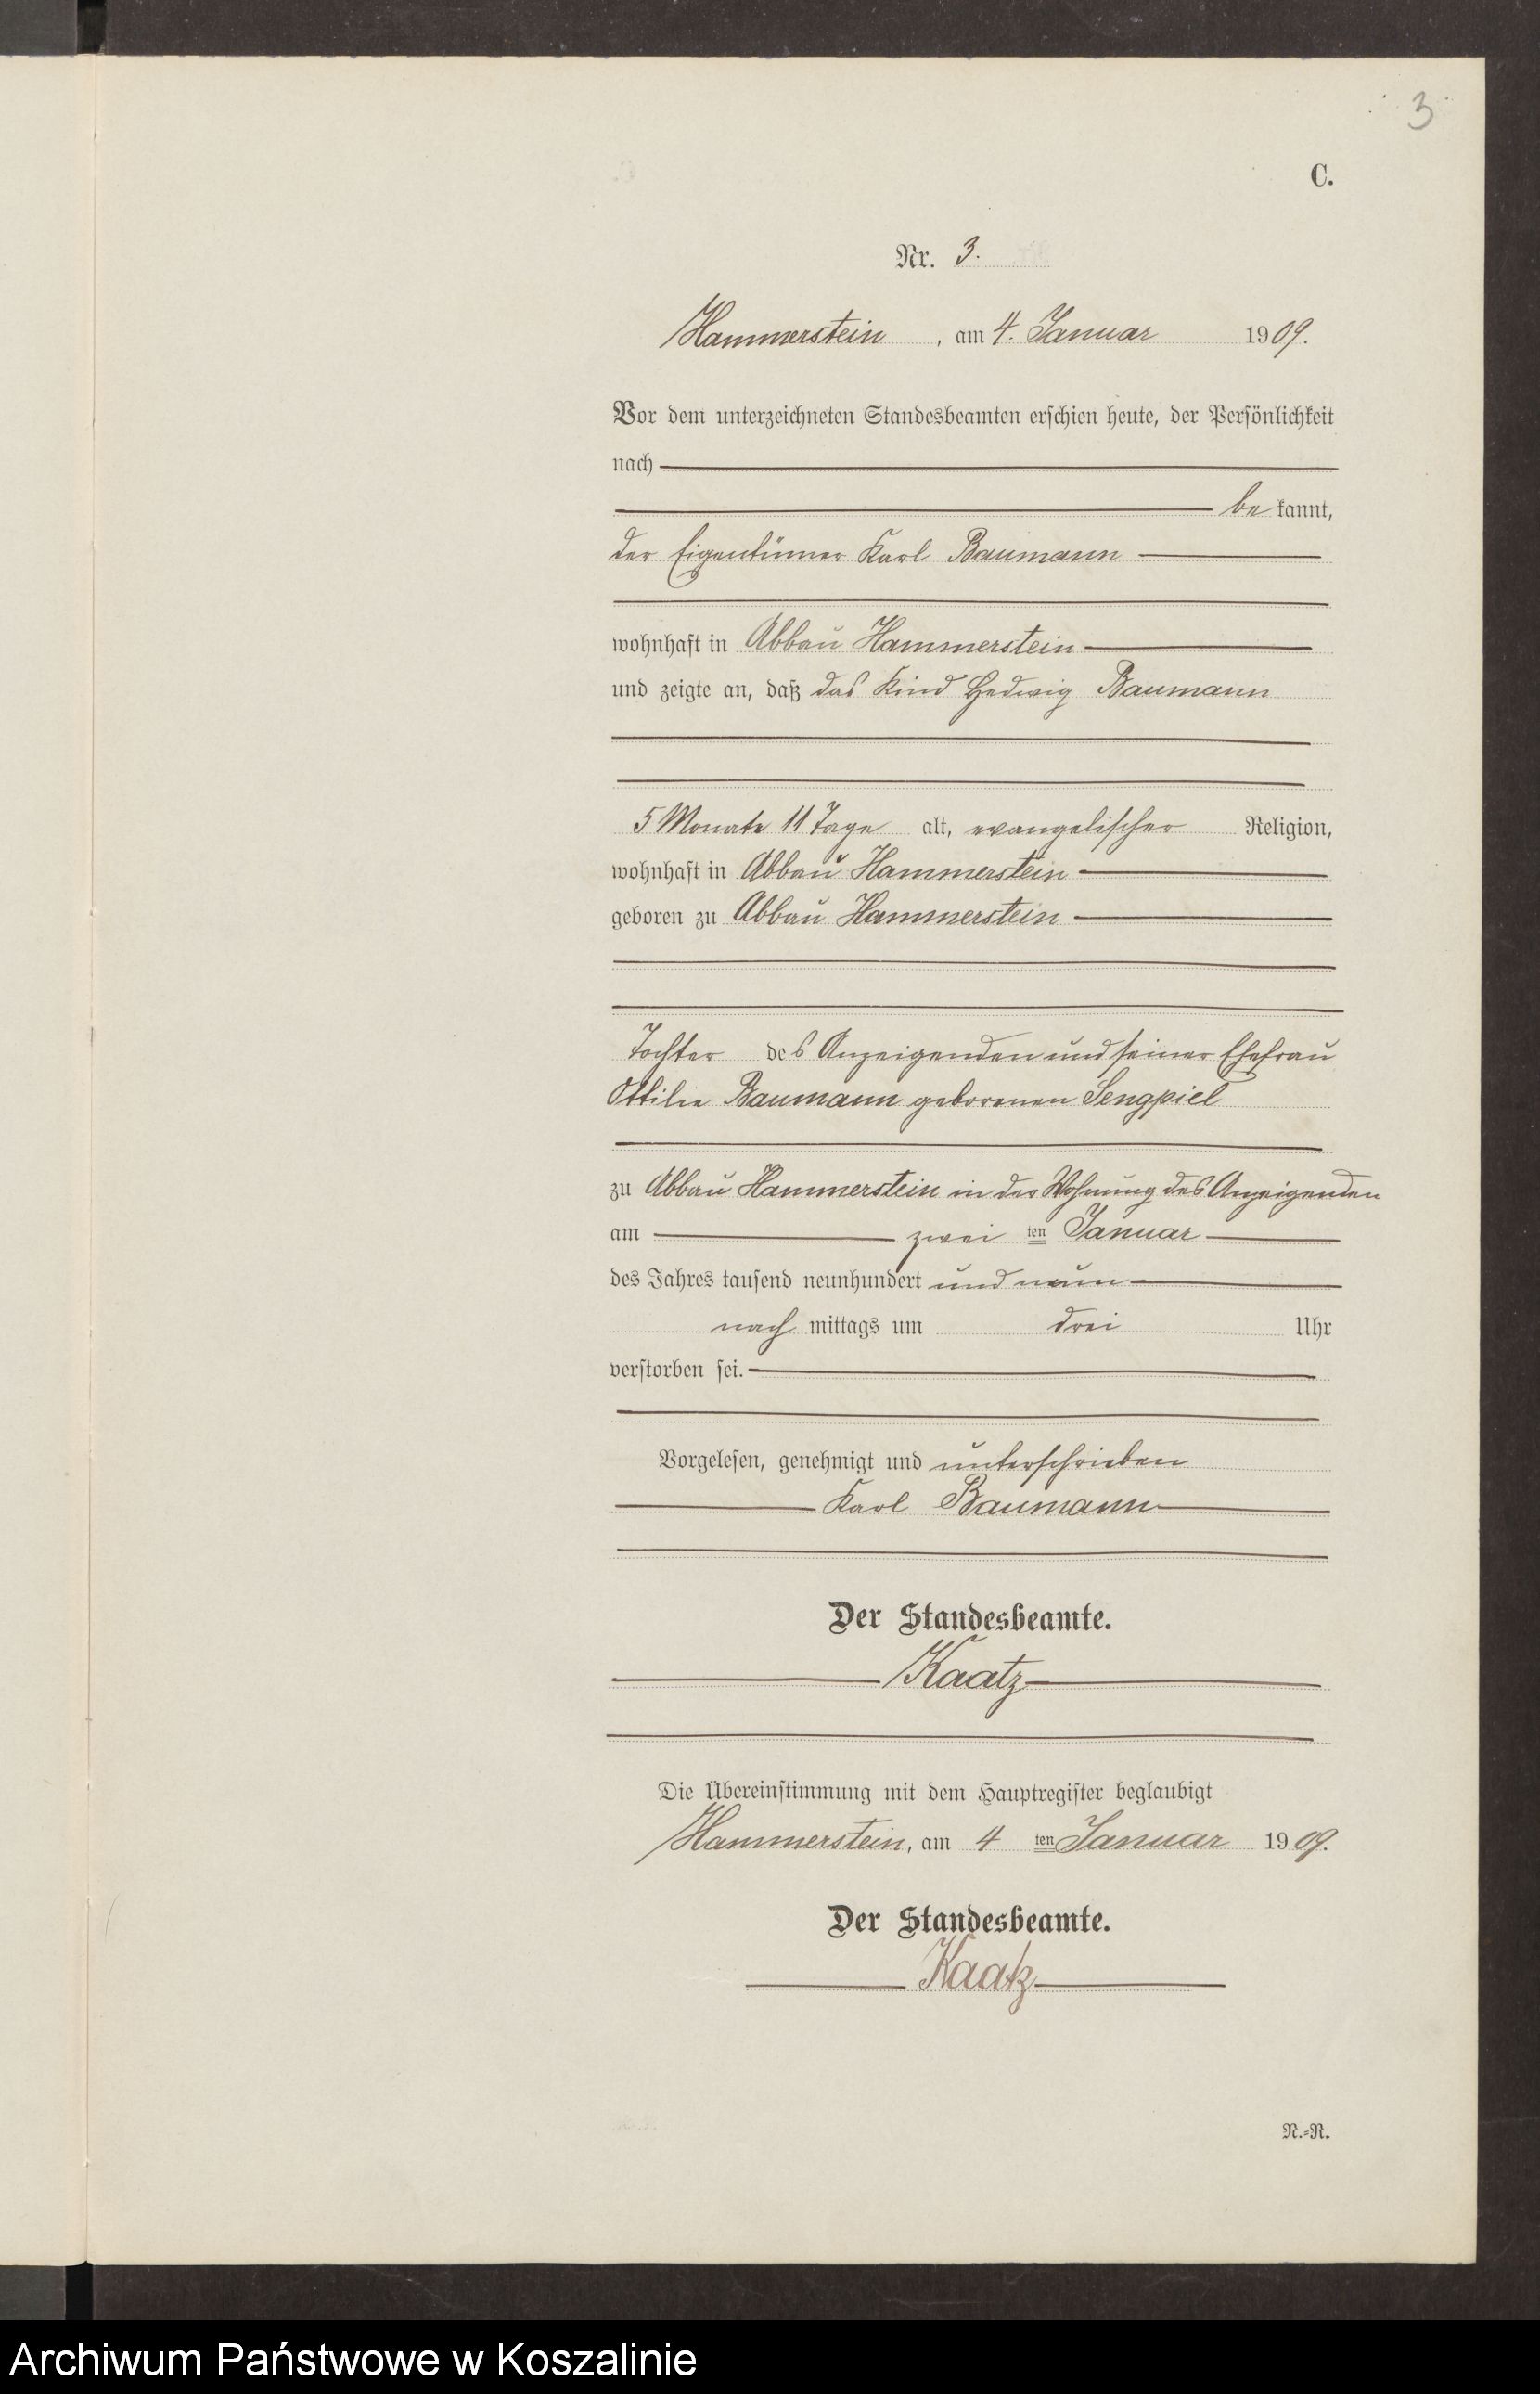 3
C.
Nr. 3.
Hammerstein, am 4. Januar 1909.
Vor dem unterzeichneten Standesbeamten erschien heute, der Persönlichkeit
nach
bekannt,
der Eigentümer Karl Baumann
wohnhaft in Abbau Hammerstein
und zeigte an, daß das Kind Hedwig Baumann
5 Monate 11 Tage alt, evangelischer Religion,
wohnhaft in Abbau Hammerstein
geboren zu Abbau Hammerstein
Tochter des Anzeigenden und seiner Ehefrau
Ottilie Baumann geborenen Sengpiel
zu Abbau Hammerstein in der Wohnung des Anzeigenden
am zwei ten Januar
des Jahres tausend neunhundert und neun
nach mittags um drei Uhr
verstorben sei.
Vorgelesen, genehmigt und unterschrieben
Karl Baumann
Der Standesbeamte.
Kaatz
Die Übereinstimmung mit dem Hauptregister beglaubigt
Hammerstein, am 4 ten Januar 1909.
Der Standesbeamte.
Kaatz
N.-R.
Archiwum Państwowe w Koszalinie